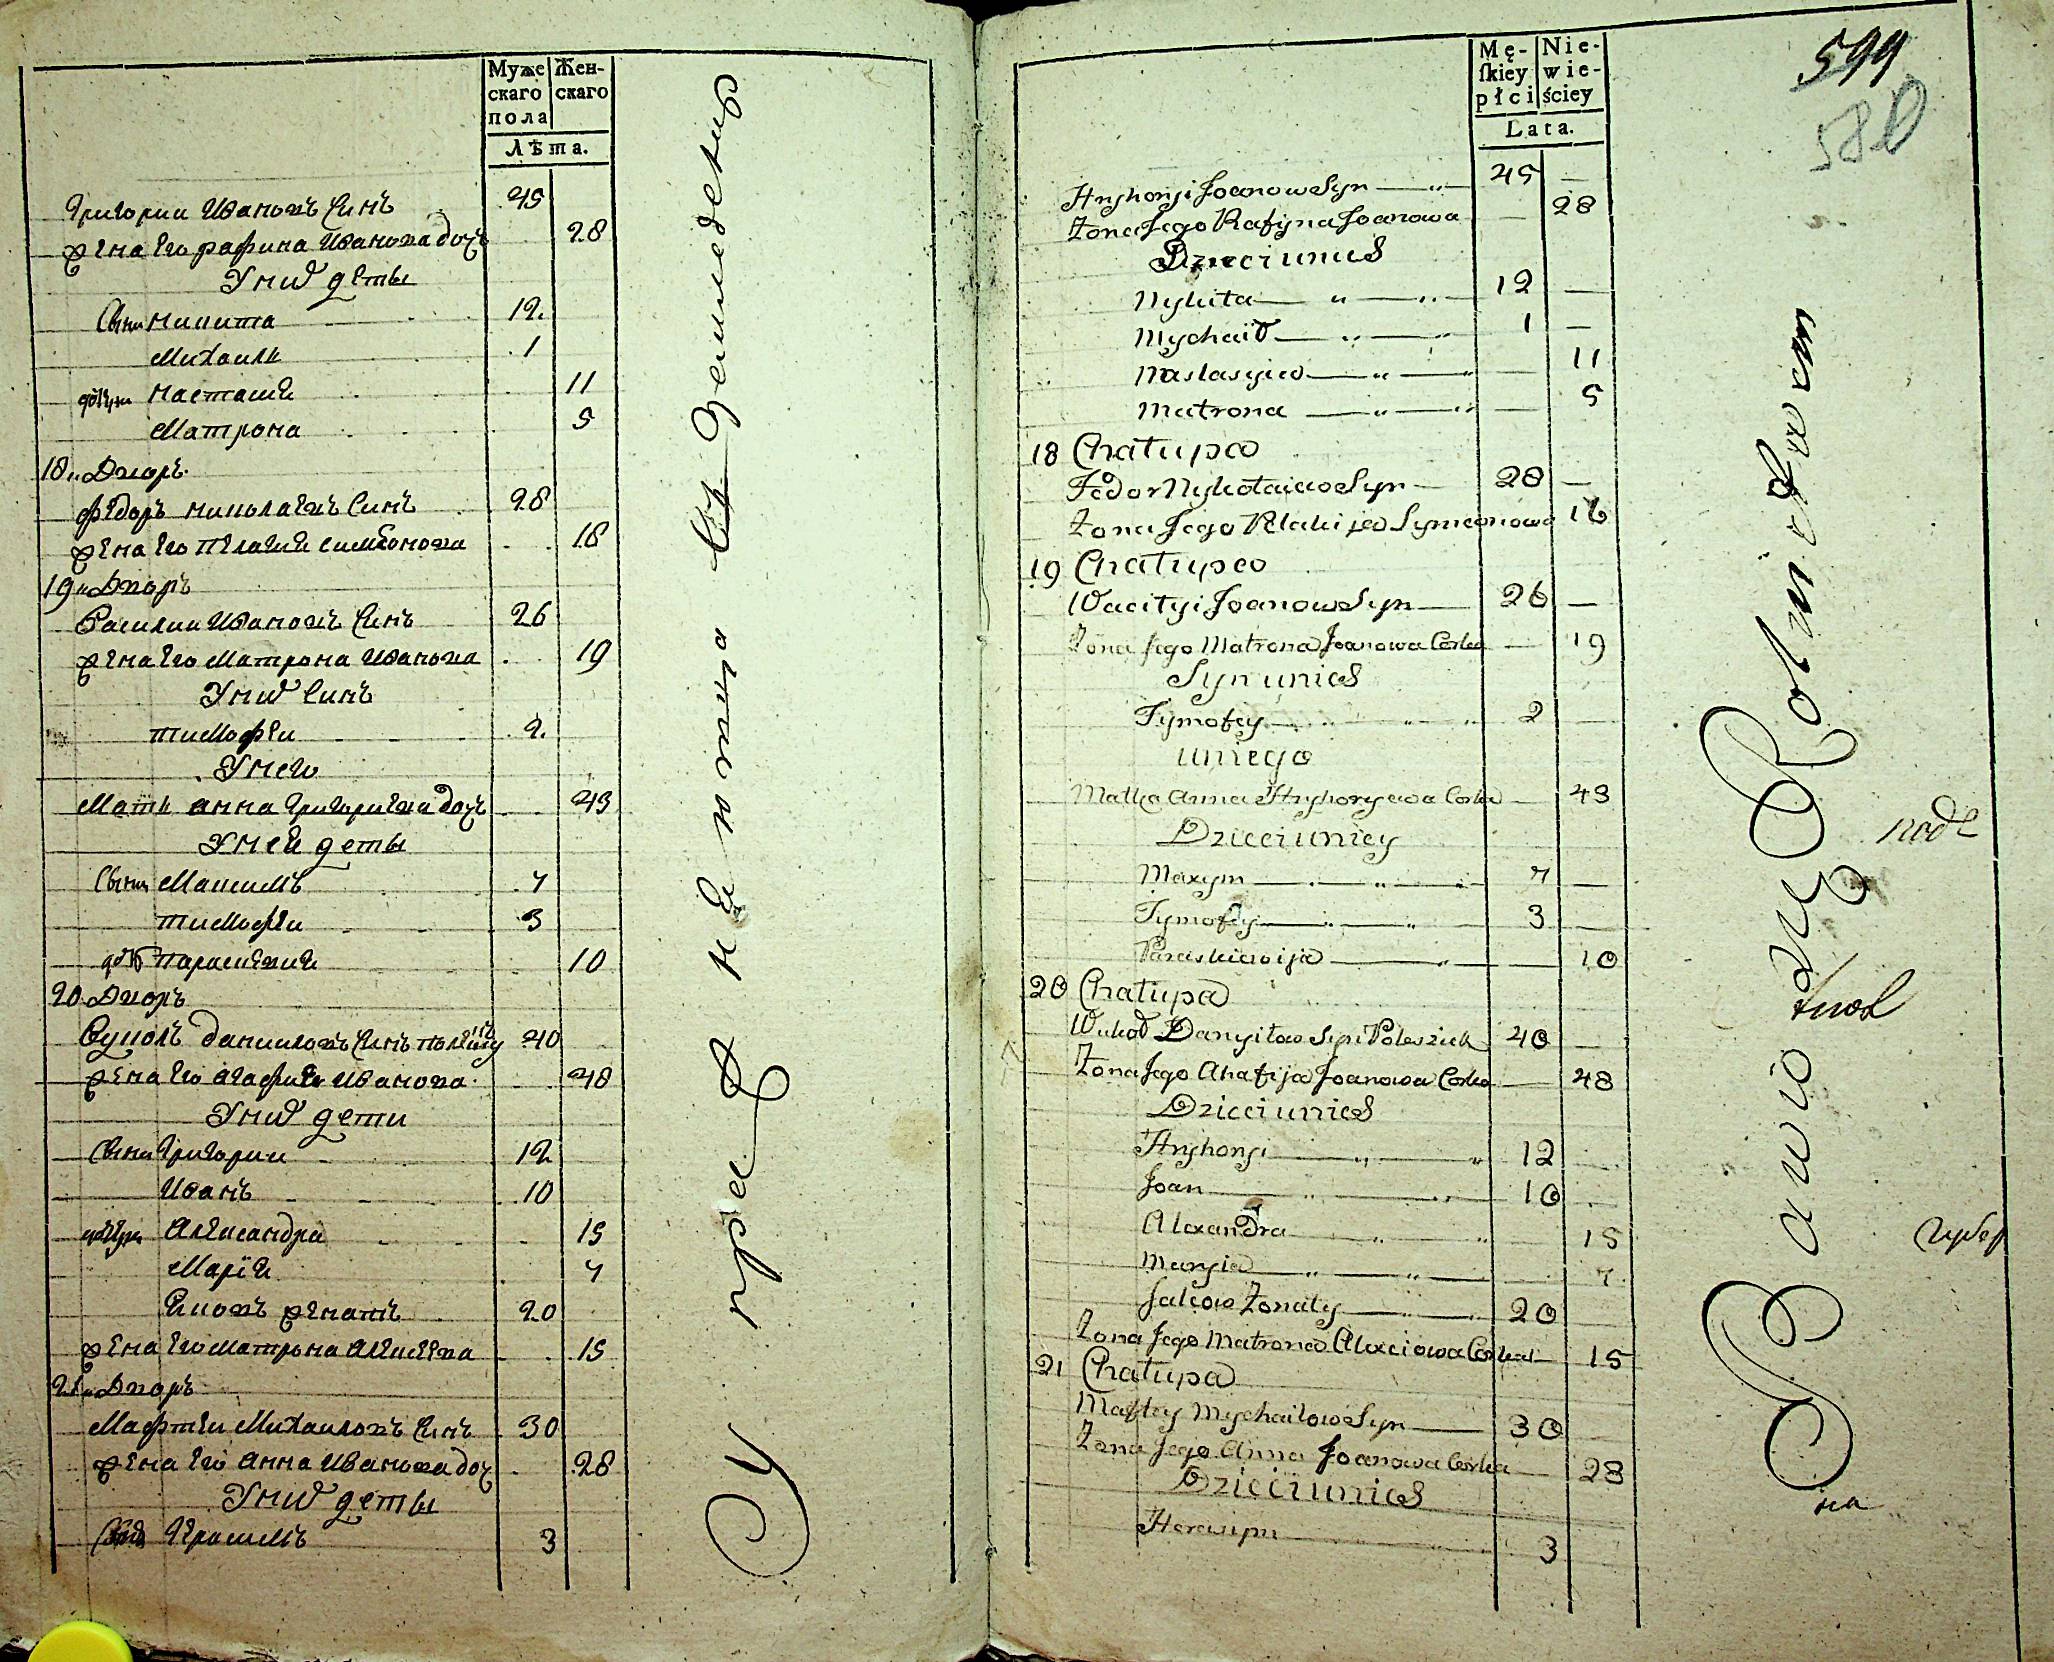 Муже скаго пола
Жен- скаго
Лѣта.
Григории Ивановъ Синъ 45
жена Его рафина Иванова доч 28
Уних деты
Сыни никита 12
Михаилъ 1
дочери настасия 11
Матрона 5
18 Дворъ
Федоръ николаевъ Синъ 28
жена Его пелагия симеонова 18
19 Дворъ
Василии Ивановъ Синъ 26
жена Его Матрона Иванова 19
Уних Синъ
тимофеи 2
Унего
Мать анна Григориева доч 43
Уней деты
Сыни Максимъ 7
тимофеи 3
дочь параскевия 10
20 Дворъ
Вуколъ даниловъ Синъ
жена Его агафия Иванова 48
Уних дети
Сыни Григории 12
Иванъ 10
дочери Александра 15
Мария 7
Яковъ женатъ 20
жена Его Матрона Алексеева 15
21 Дворъ
Мафтеи Михаиловъ Синъ 30
жена Его Анна Иванова доч 28
Уних деты
Герасимъ 3
Упражняютца въ Земледении
Mę- skiey płci
Nie- wie- ściey
Lata.
Hryhoryi Joanow Syn 45
Zona Jego Rafyna Joanowa 28
Dzieci unich
Nykita 12
Mychaiło 1
Nastasyia 11
Matrona 5
18 Chałupa
Fedor Nykołaiew Syn 28
Zona Jego Pelahija Symeonowa 16
19 Chałupa
Wacilyi Joanow Syn 26
Zona Jego Matrona Joanowa Corka 19
Syn unich
Tymofey 2
uniego
Matka Anna Hryhoryewa Corka 43
Dzieci uniey
Maxym 7
Tymofey 3
Paraskiewija 10
20 Chałupa
Wukoł Danyiłow Syn Poleszick 40
Zona Jego Ahafija Joanowa Corka 48
Dzieci unich
Hryhoryi 12
Joan 10
Alexandra 15
Maryia 7
Jakow Zonaty 20
Zona Jego Matrona Alexiowa Corka 15
21 Chałupa
Maftey Mychaiłow Syn 30
Zona Jego Anna Joanowa Corka 28
Dzieci unich
Herasym 3
Bawią się Rolnictwem
599
580
на